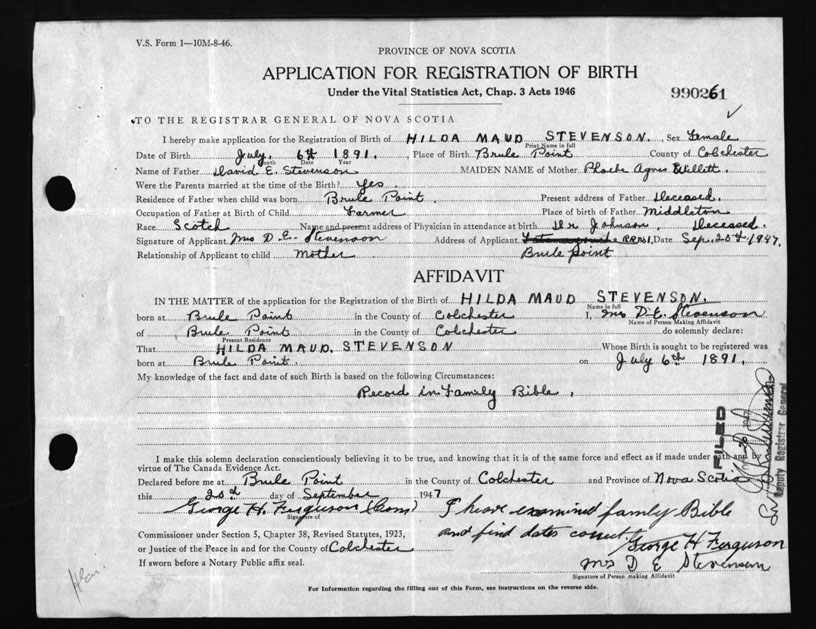 V.S. Form 1—10M-8-46.
PROVINCE OF NOVA SCOTIA
APPLICATION FOR REGISTRATION OF BIRTH
Under the Vital Statistics Act, Chap. 3 Acts 1946
990261
TO THE REGISTRAR GENERAL OF NOVA SCOTIA
I hereby make application for the Registration of Birth of HILDA MAUD STEVENSON. Sex Female
Print Name in full
Date of Birth July 6th 1891. Place of Birth Brule Point County of Colchester
Month Date Year
Name of Father David E. Stevenson MAIDEN NAME of Mother Phoebe Agnes Willett.
Were the Parents married at the time of the Birth? Yes
Residence of Father when child was born Brule Point. Present address of Father Deceased.
Occupation of Father at Birth of Child Farmer Place of birth of Father Middleton
Race Scotch Name and present address of Physician in attendance at birth Dr Johnson, Deceased.
Signature of Applicant Mrs D. E. Stevenson Address of Applicant Tatamagouche RR No1, Date Sep. 20th 1947.
Relationship of Applicant to child Mother Brule Point
AFFIDAVIT
IN THE MATTER of the application for the Registration of the Birth of HILDA MAUD STEVENSON.
Name in full
born at Brule Point in the County of Colchester I, Mrs D. E. Stevenson
Name of Person Making Affidavit
of Brule Point in the County of Colchester do solemnly declare:
Present Residence
That HILDA MAUD. STEVENSON Whose Birth is sought to be registered was
born at Brule Point. on July 6th 1891.
My knowledge of the fact and date of such Birth is based on the following Circumstances:
Record in Family Bible.
FILED
Deputy Registrar General
I make this solemn declaration conscientiously believing it to be true, and knowing that it is of the same force and effect as if made under oath and by virtue of The Canada Evidence Act.
Declared before me at Brule Point in the County of Colchester and Province of Nova Scotia
this 20th day of September 1947
George H. Ferguson (Com)
Signature of
I have examined family Bible
and find dates correct.
Commissioner under Section 5, Chapter 38, Revised Statutes, 1923,
or Justice of the Peace in and for the County of Colchester
George H Ferguson
If sworn before a Notary Public affix seal.
Mrs D E Stevenson
Signature of Person making Affidavit
For Information regarding the filling out of this Form, see instructions on the reverse side.